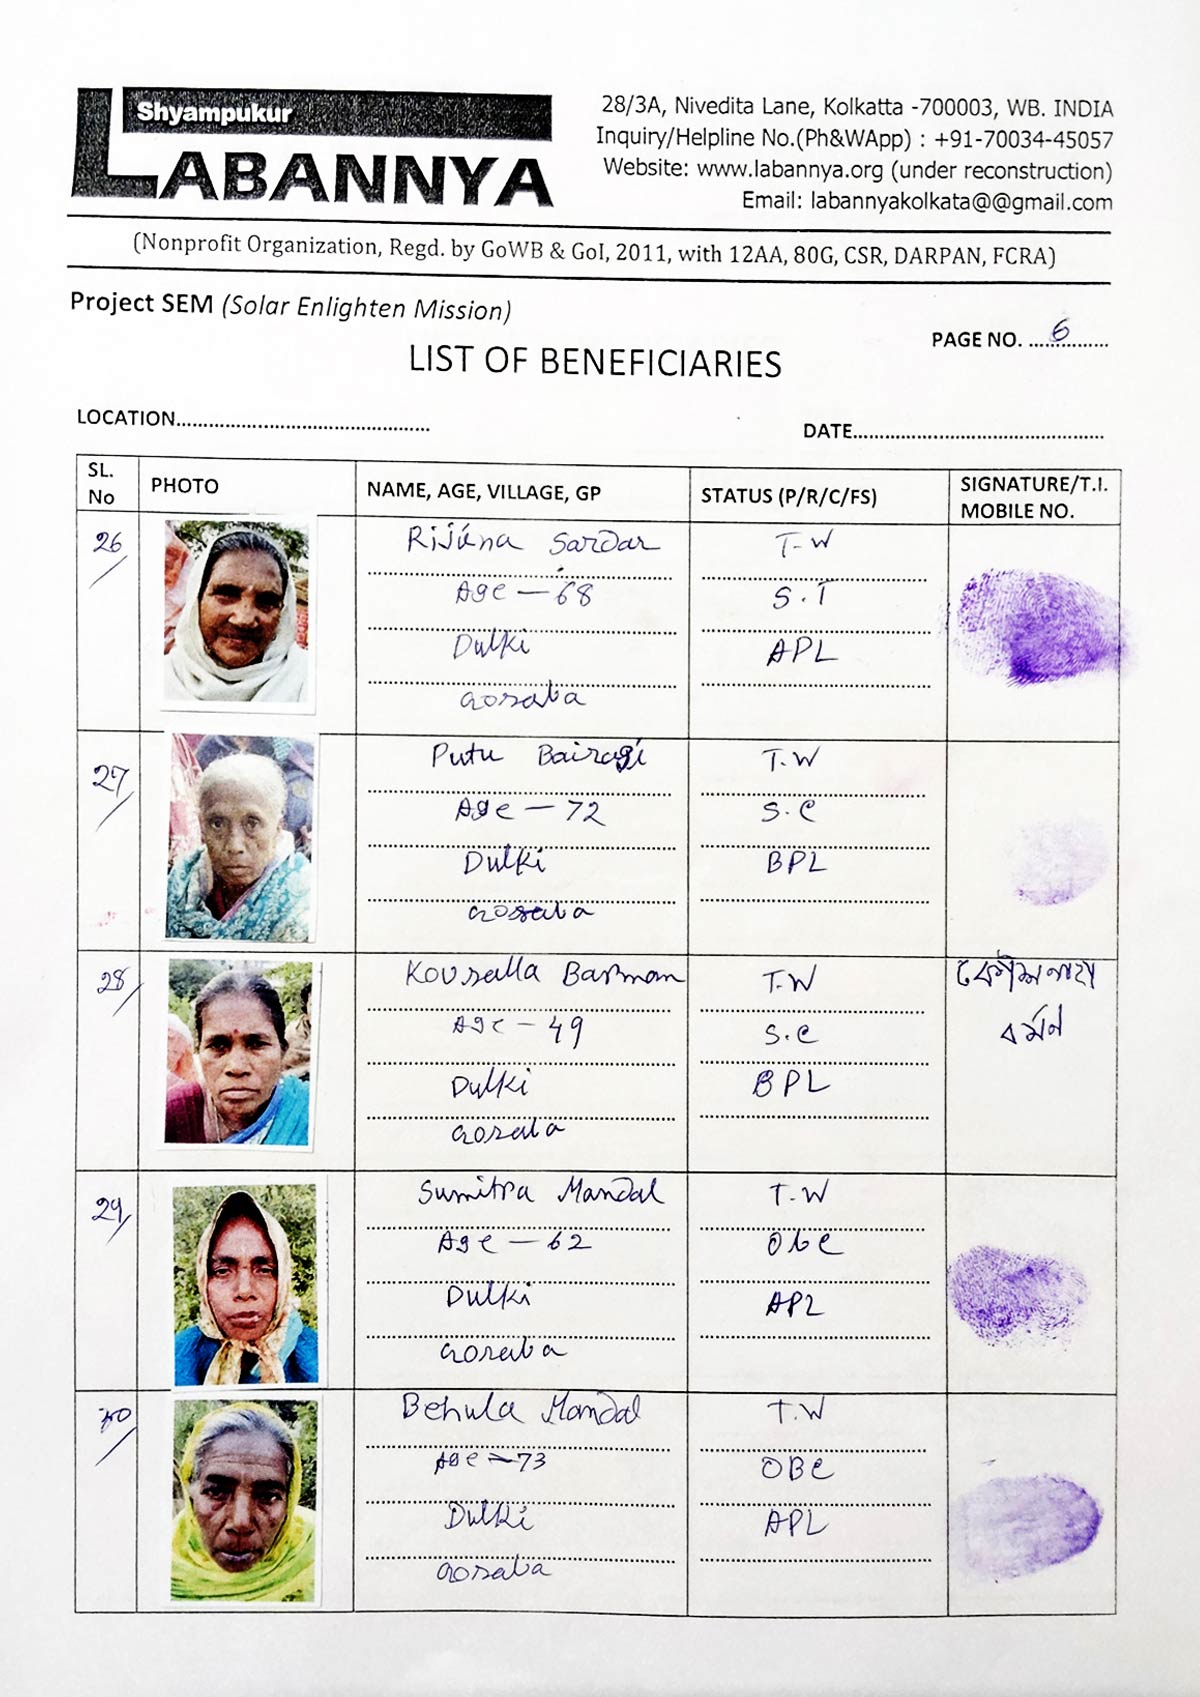 Shyampukur
LABANNYA
28/3A, Nivedita Lane, Kolkatta -700003, WB. INDIA
Inquiry/Helpline No.(Ph&WApp) : +91-70034-45057
Website: www.labannya.org (under reconstruction)
Email: labannyakolkata@@gmail.com
(Nonprofit Organization, Regd. by GoWB & GoI, 2011, with 12AA, 80G, CSR, DARPAN, FCRA)
Project SEM (Solar Enlighten Mission)
PAGE NO. ....6....
LIST OF BENEFICIARIES
LOCATION..............................................
DATE..............................................
SL. No PHOTO NAME, AGE, VILLAGE, GP STATUS (P/R/C/FS) SIGNATURE/T.I. MOBILE NO.
26/ Rijuna Sardar T-W
Age - 68 S.T
Dulki APL
Gosaba
27/ Putu Bairagi T.W
Age - 72 S.C
Dulki BPL
Gosaba
28/ Kousalla Barman T.W
Age - 49 S.C বর্মন
Dulki BPL
Gosaba
29/ Sumitra Mandal T.W
Age - 62 ObC
Dulki APL
Gosaba
30/ Behula Mandal T.W
Age - 73 OBC
Dulki APL
Gosaba